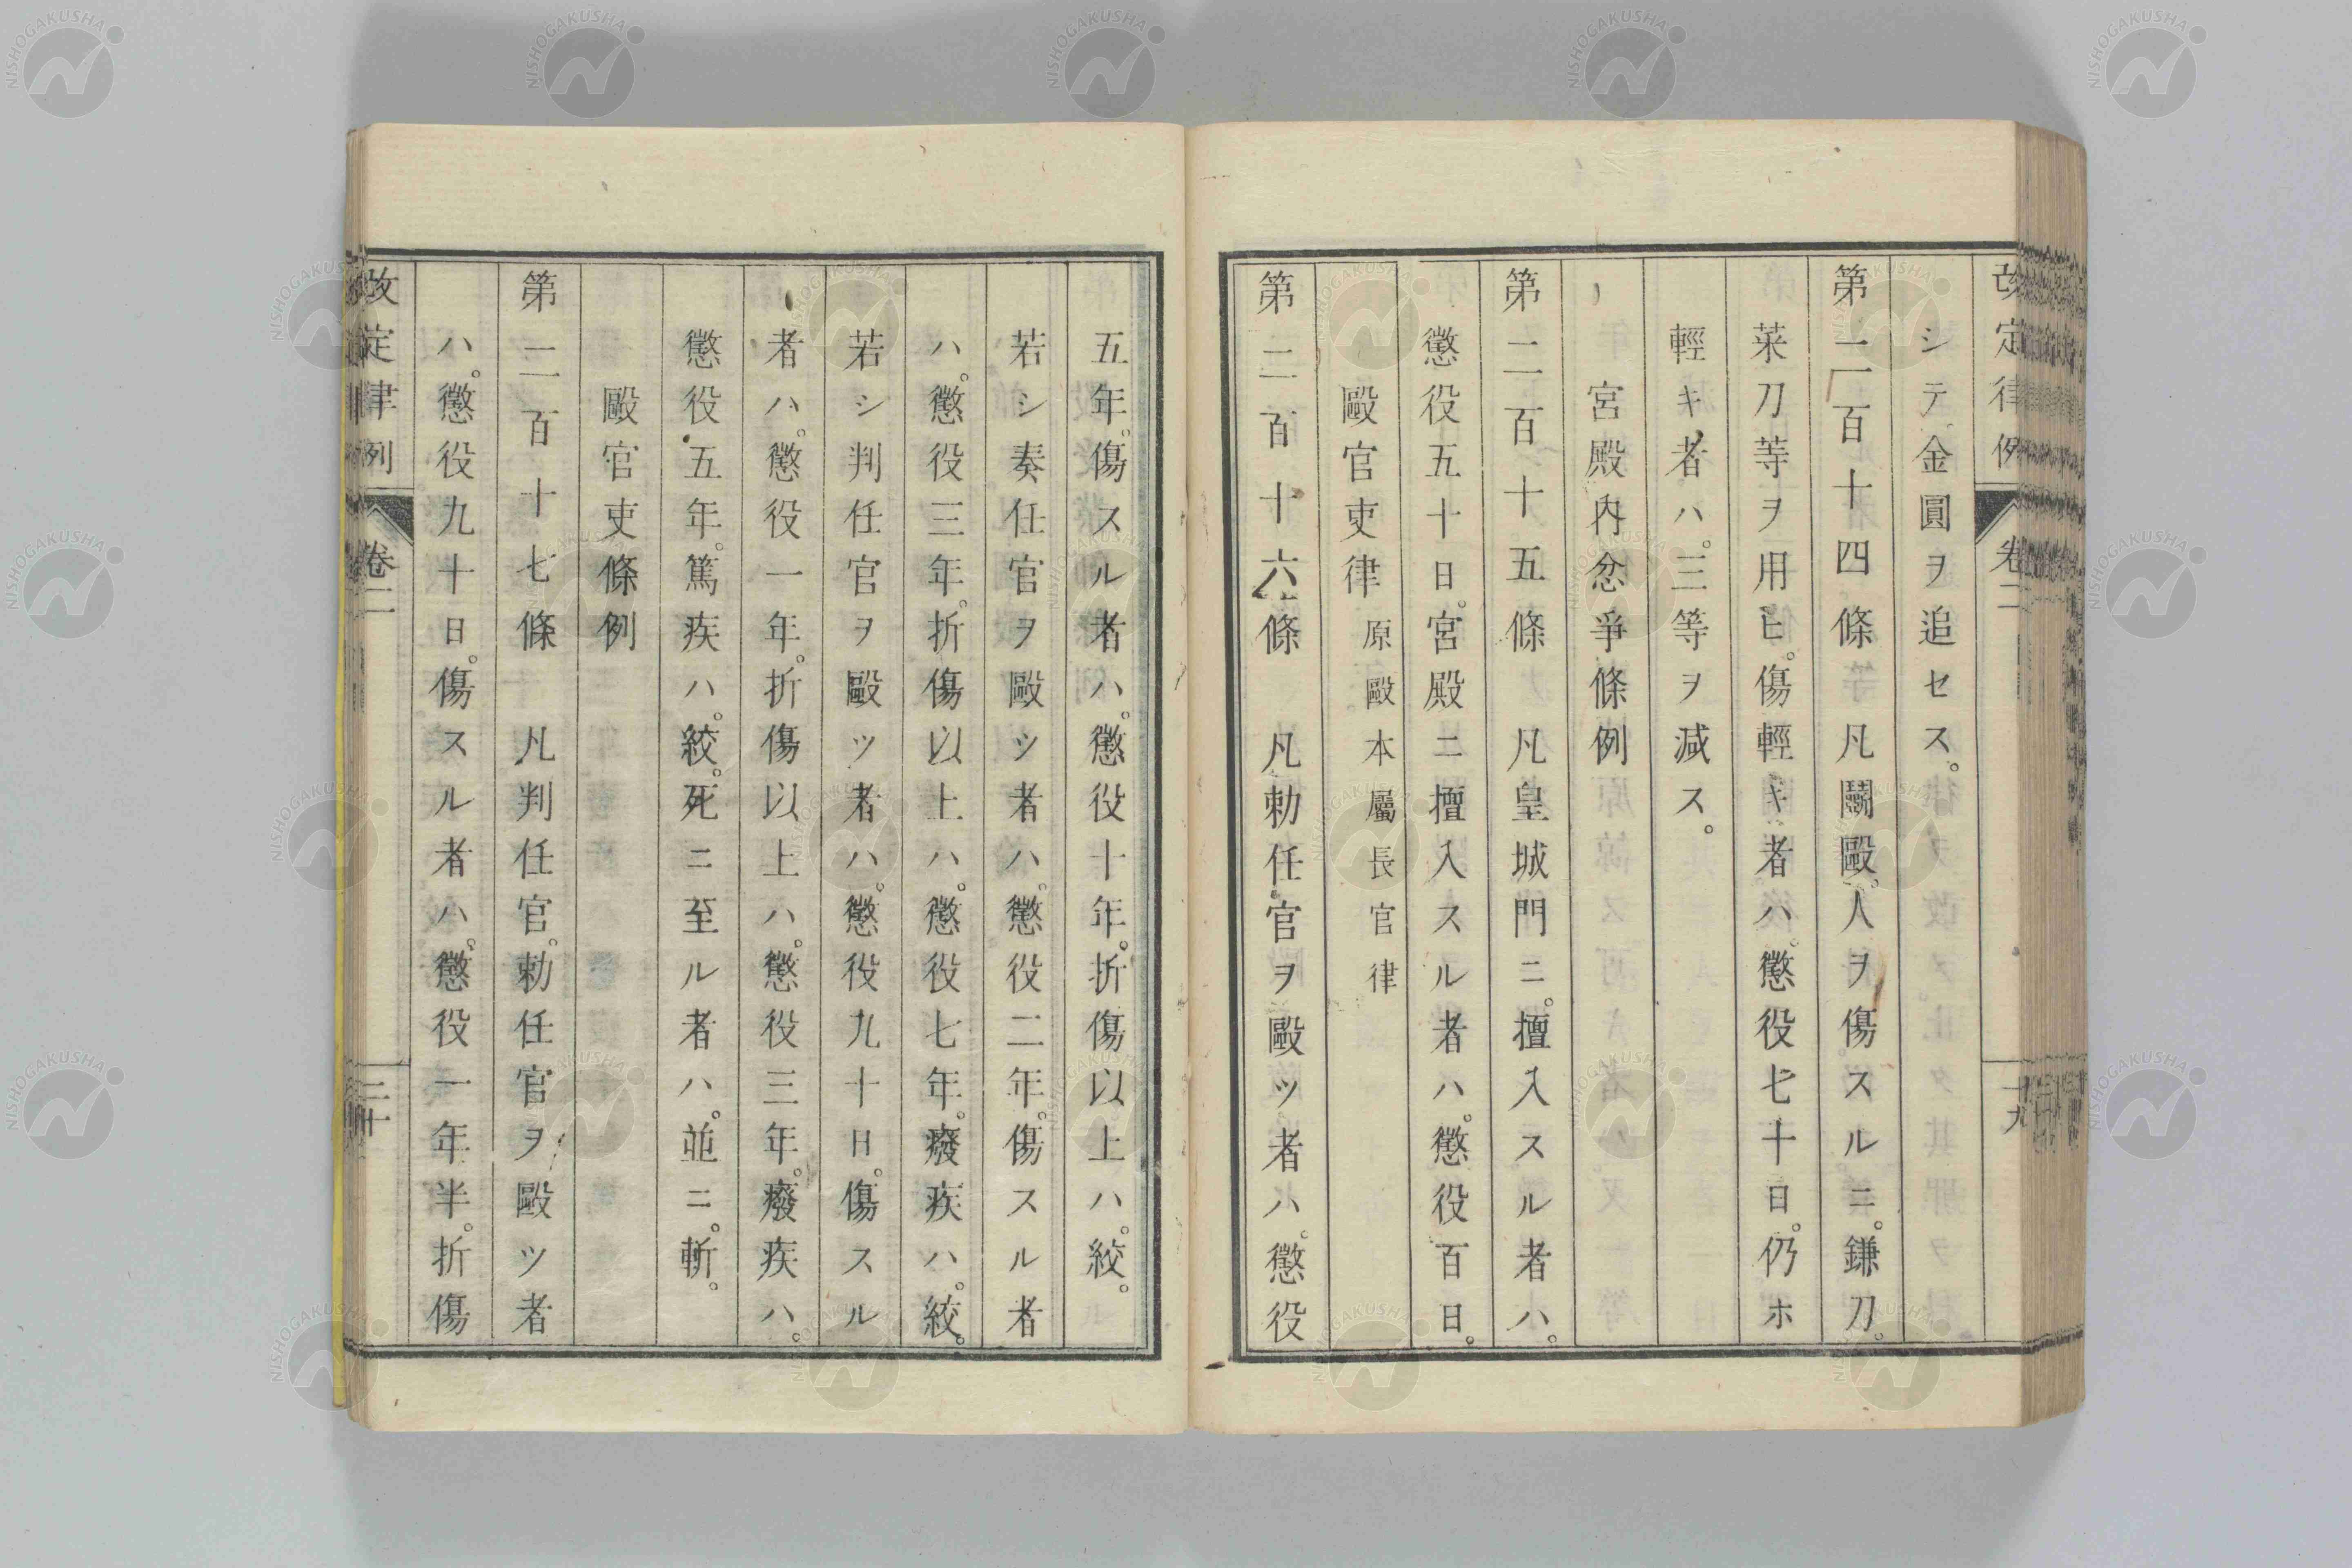 改定律例 卷二 十九
シテ金圓ヲ追セス。
第二百十四條 凡鬭毆。人ヲ傷スルニ。鎌刀。
菜刀等ヲ用ヒ。傷輕キ者ハ。懲役七十日。仍ホ
輕キ者ハ。三等ヲ減ス。
宮殿內忿爭條例
第二百十五條 凡皇城門ニ。擅入スル者ハ。
懲役五十日。宮殿ニ擅入スル者ハ。懲役百日。
毆官吏律 原毆本屬長官律
第二百十六條 凡勅任官ヲ毆ツ者ハ。懲役
五年。傷スル者ハ。懲役十年。折傷以上ハ。絞。
若シ奏任官ヲ毆シ者ハ。懲役二年。傷スル者
ハ。懲役三年。折傷以上ハ。懲役七年。癈疾ハ。絞。
若シ判任官ヲ毆ツ者ハ。懲役九十日。傷スル
者ハ。懲役一年。折傷以上ハ。懲役三年。癈疾ハ。
懲役五年。篤疾ハ。絞。死ニ至ル者ハ。並ニ。斬。
毆官吏條例
第二百十七條 凡判任官。勅任官ヲ毆ツ者
ハ。懲役九十日。傷スル者ハ。懲役一年半。折傷
改定律例 卷二 二十
NISHOGAKUSHA